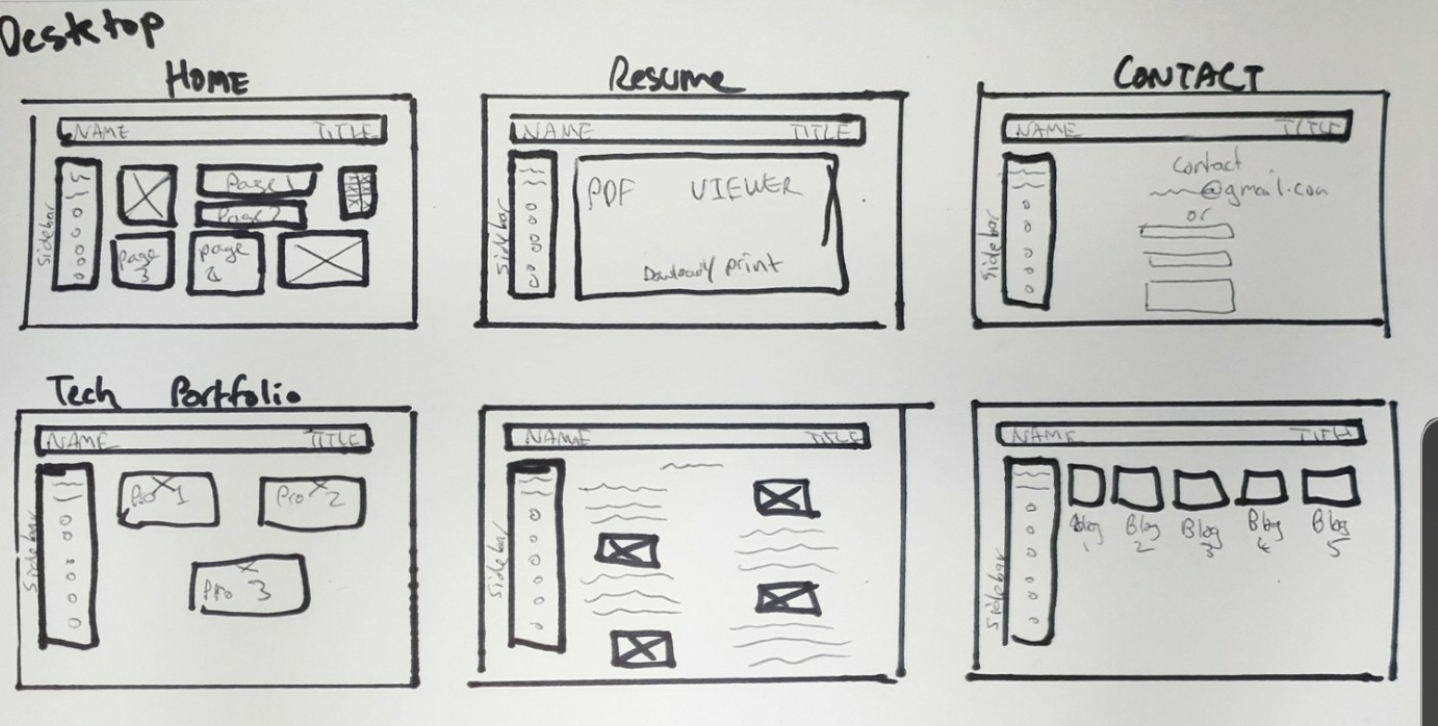 Desktop
HOME
NAME TITLE
Sidebar
Page 1
Page 2
Page 3
page 4
Resume
NAME TITLE
Sidebar
PDF VIEWER
Download/print
CONTACT
NAME TITLE
Sidebar
Contact
@gmail.com
or
Tech Portfolio
NAME TITLE
Sidebar
Pro 1
Pro 2
Pro 3
NAME TITLE
Sidebar
NAME TITLE
Sidebar
Blog 1
Blog 2
Blog 3
Blog 4
Blog 5